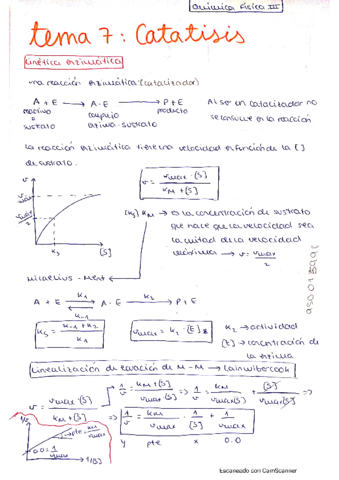 Química Física III
tema 7: Catalisis
cinética enzimática
una reacción enzimática (catalizador)
A + E → A·E → P + E
reactivo o sustrato
complejo enzima-sustrato
producto
Al ser un catalizador no se consume en la reacción
la reacción enzimática tiene una velocidad en función de la [ ]
de sustrato.
v
vmax
vmax/2
ks
[S]
v = vmax·[S] / kM + [S]
(ks) kM → es la concentración de sustrato
que hace que la velocidad sea
la mitad de la velocidad
máxima → v = vmax/2
Micaelius-Ment
A + E ⇌ A·E → P + E
k1
k-1
k2
ks = k-1 + k2 / k1
vmax = k2·[E]
k2 → actividad
[E] → concentración de
la enzima
Linealización de ecuación de M-M → Lainwiberbook
v = vmax·[S] / kM + [S]
1/v = kM + [S] / vmax·[S] ⇒ 1/v = kM / vmax[S] + [S] / vmax[S] ⇒
⇒ 1/v = kM/vmax · 1/[S] + 1/vmax
y pte x o.o
1/v
pte = kM/vmax
o.o = 1/vmax
1/[S]
Escaneado con CamScanner